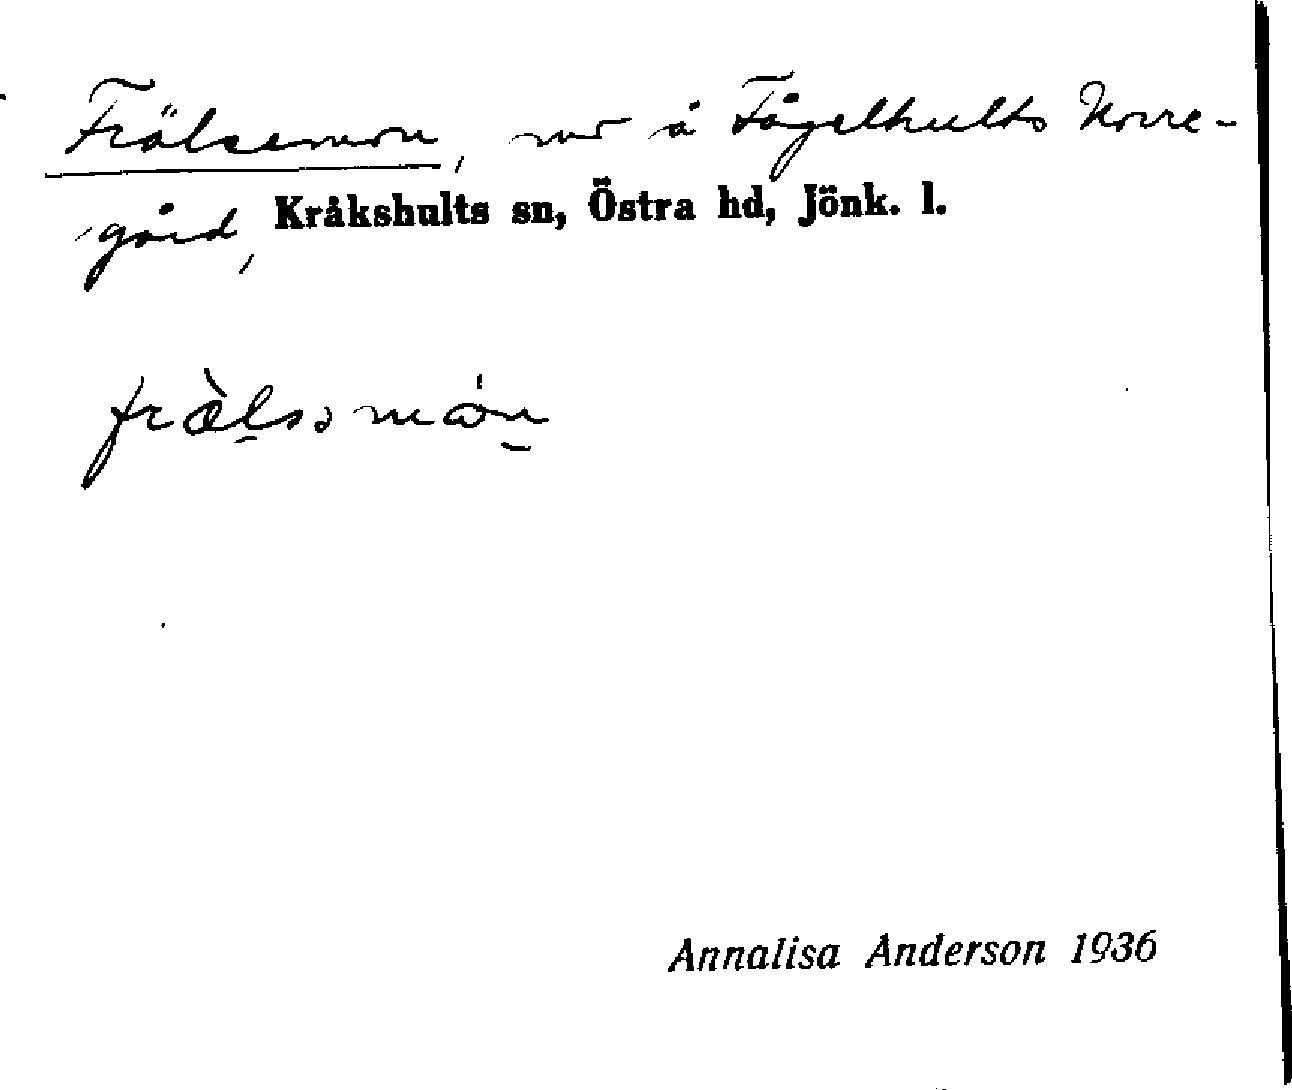 Frälsemon, mo å Fågelhults Norre-
gård, Kråkshults sn, Östra hd, Jönk. l.
Annalisa Anderson 1936